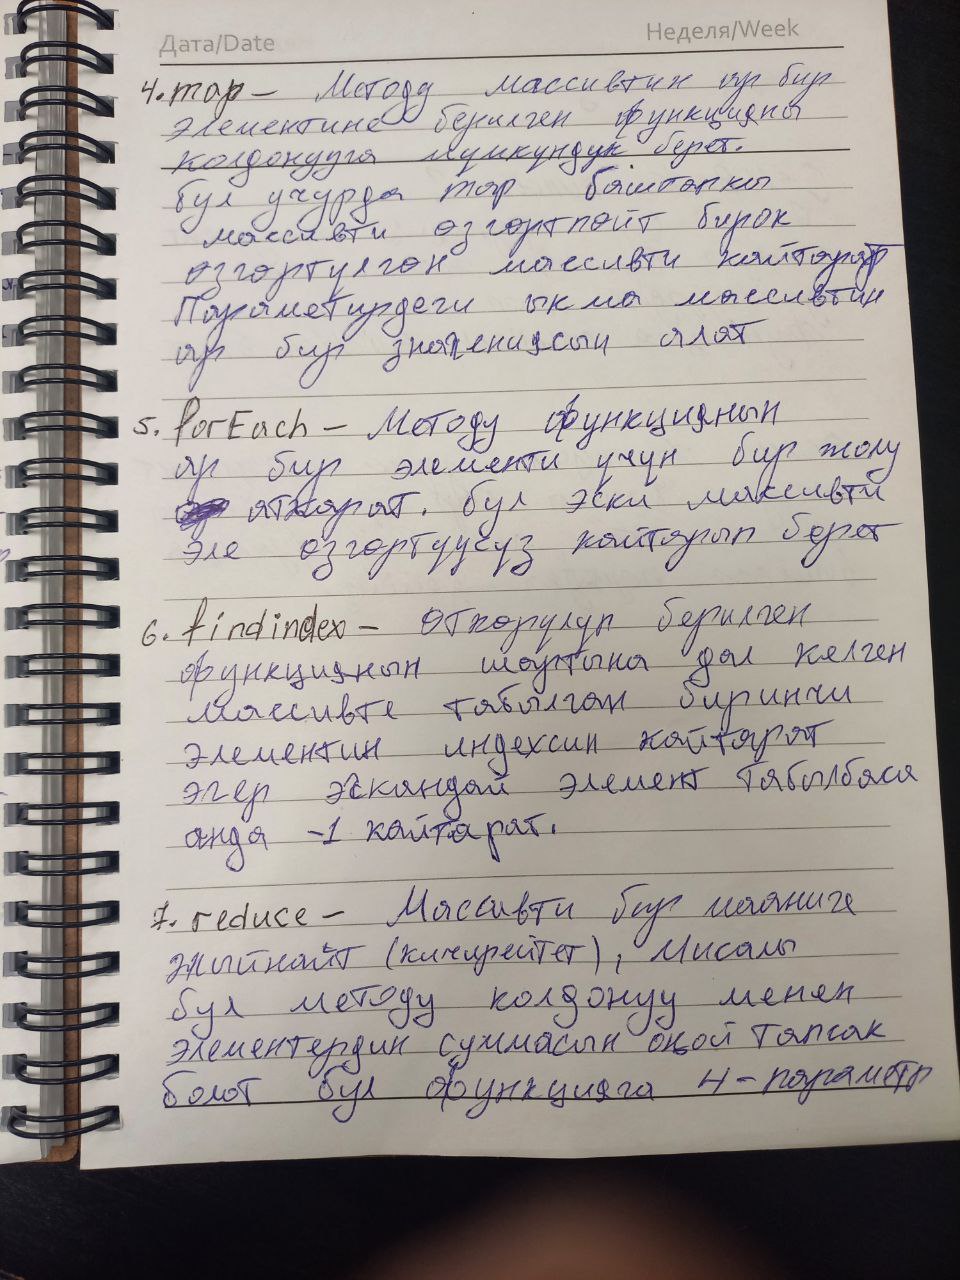 Дата/Date Неделя/Week
4. map – Методу массивтин ар бир
элементине берилген функцияны
колдонууга мумкундук берет.
бул учурда map баштапкы
массивти озгортпойт бирок
озгортулгон массивти кайтарат
Параметирдеги ыкма массивтин
ар бир значениясын алат
5. forEach – Методу функциянын
ар бир элементи учун бир жолу
аткарат. бул эски массивти
эле озгортуусуз кайтарып берет
6. findindex – Откорулуп берилген
функциянын шартына дал келген
массивте табылган биринчи
элементин индексин кайтарат
эгер эскандай элемент табылбаса
анда -1 кайтарат.
7. reduce – Массивти бир мааниге
жыйнайт (кичирейтет), Мисалы
бул методу колдонуу менен
элементердин суммасын оңой тапсак
болот бул функцияга 4-параметр